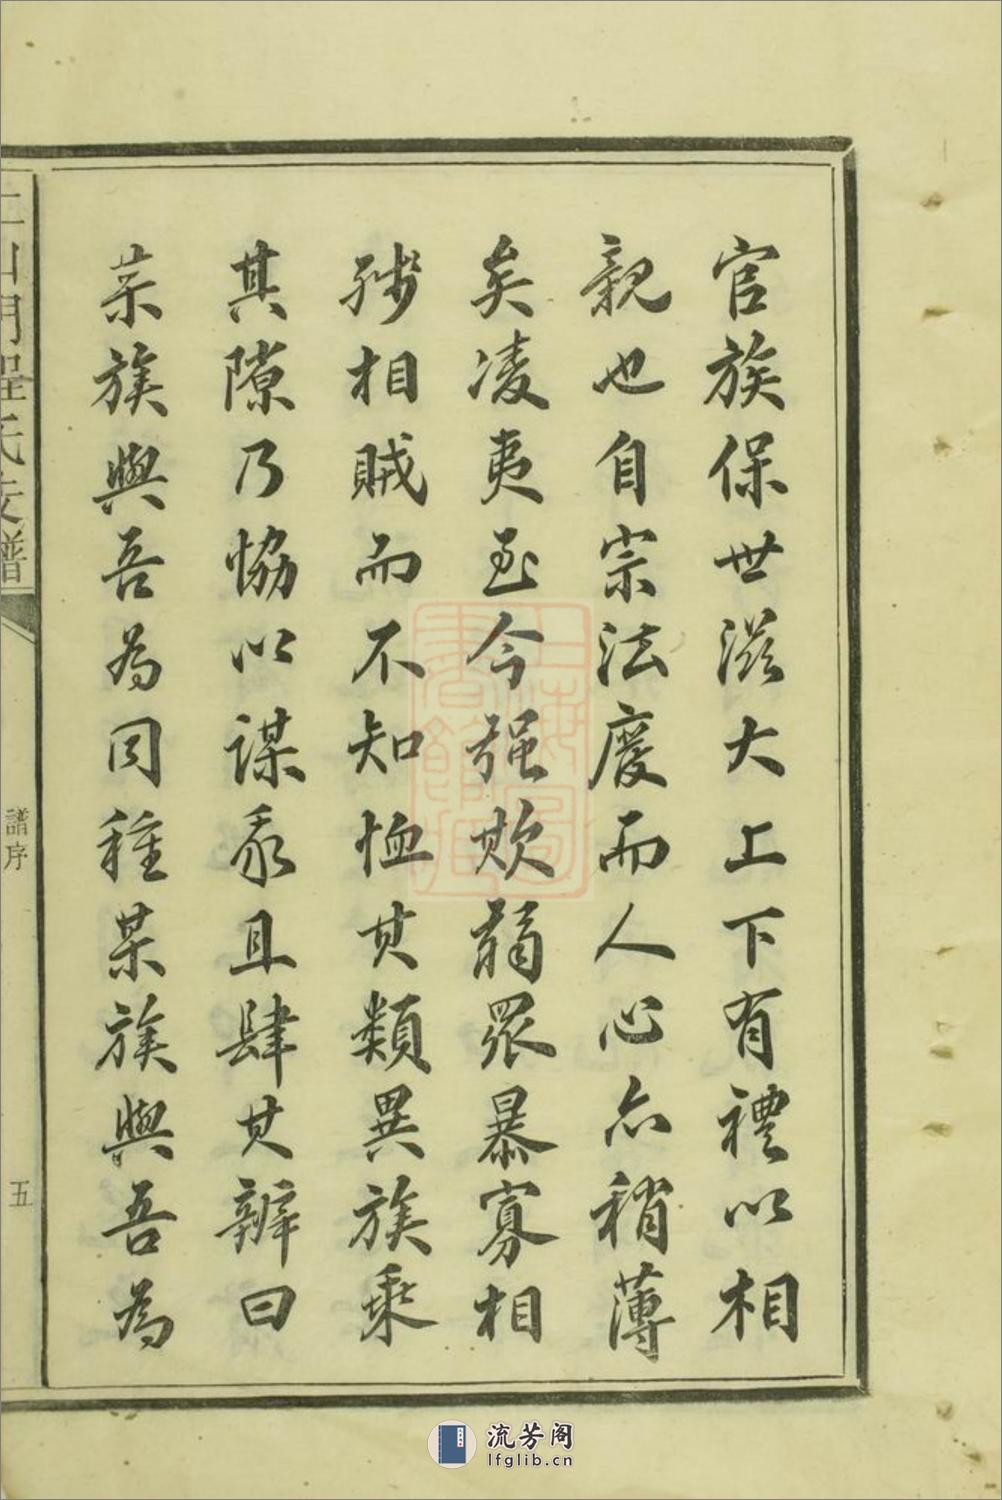 官族保世滋大上下有禮以相
親也自宗法廢而人心亦稍薄
矣凌夷至今强欺弱眾暴寡相
殘相賊而不知恤其類異族乘
其隙乃恊以謀我且肆其辯曰
某族與吾為同種某族與吾為
山門程氏支譜
譜序
五
流芳阁
lfglib.cn